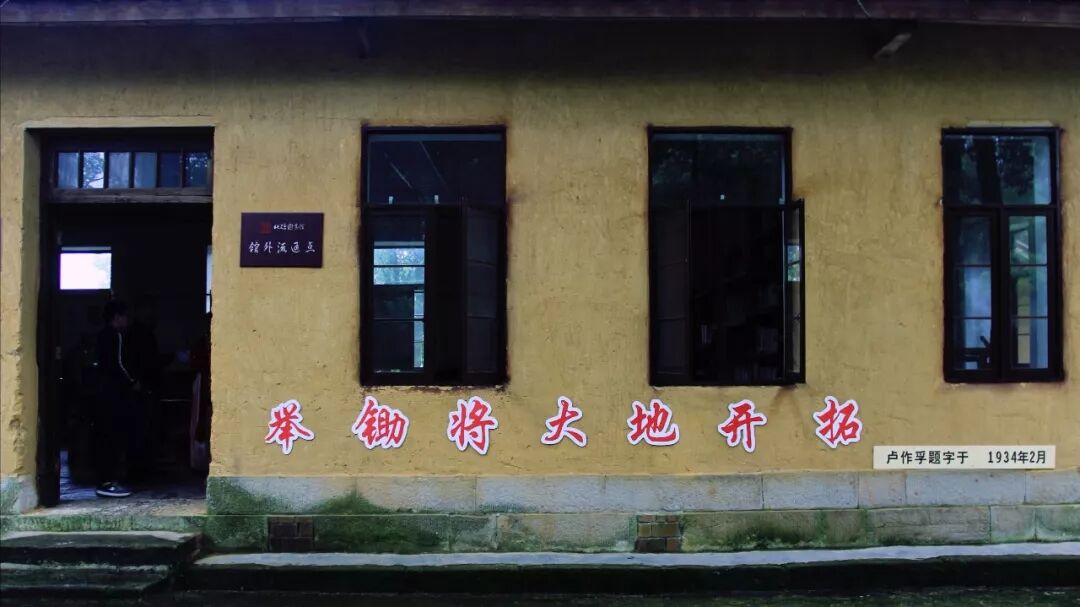 北碚图书馆
馆外流通点
举锄将大地开拓
卢作孚题字于 1934年2月